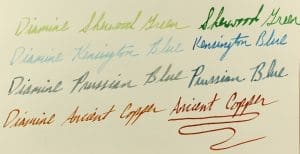 Diamine Sherwood Green Sherwood Green
Diamine Kensington Blue Kensington Blue
Diamine Prussian Blue Prussian Blue
Diamine Ancient Copper Ancient Copper